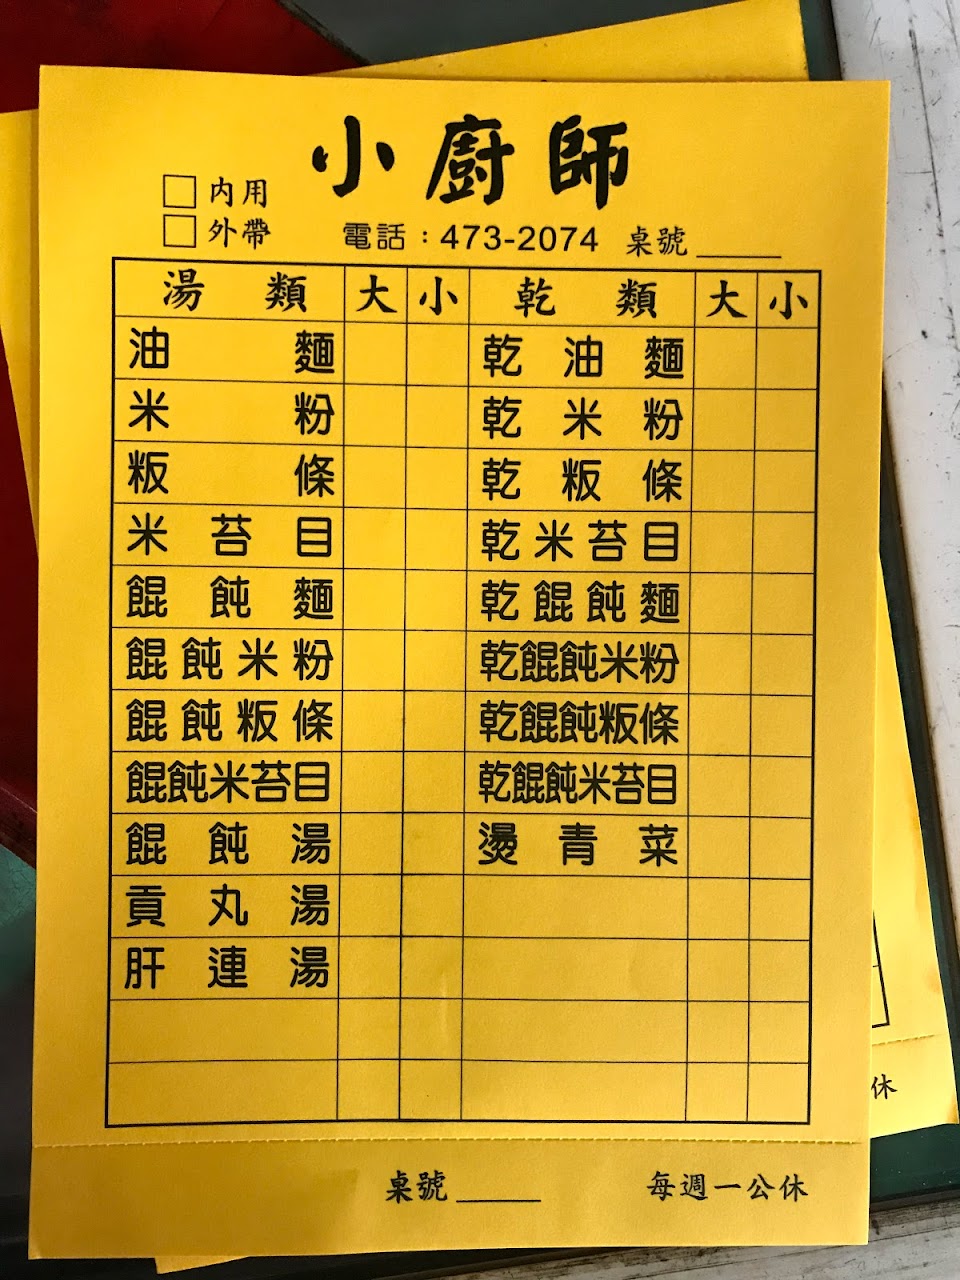 小廚師
□內用
□外帶 電話：473-2074 桌號____
湯類 大 小 乾類 大 小
油麵 乾油麵
米粉 乾米粉
粄條 乾粄條
米苔目 乾米苔目
餛飩麵 乾餛飩麵
餛飩米粉 乾餛飩米粉
餛飩粄條 乾餛飩粄條
餛飩米苔目 乾餛飩米苔目
餛飩湯 燙青菜
貢丸湯
肝連湯
桌號____ 每週一公休
休